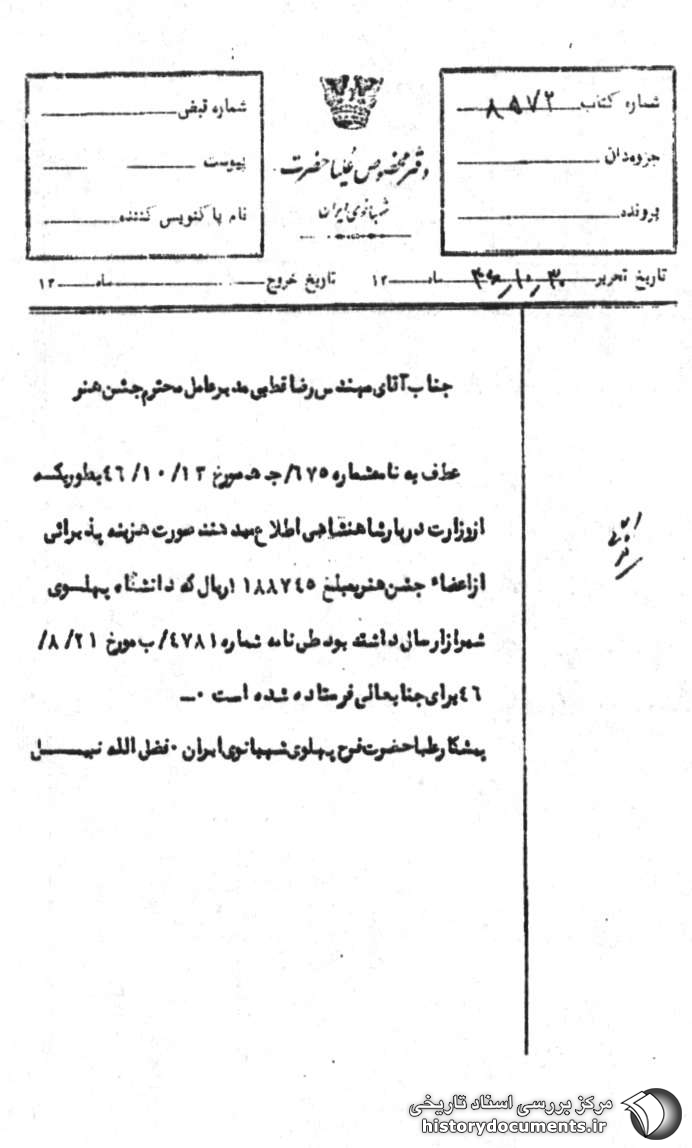 شماره کتاب ۸۵۷۲
جزوه‌دان
پرونده
دفتر مخصوص علیا حضرت
شهبانوی ایران
شماره قبض
پیوست
نام پاکنویس کننده
تاریخ تحریر ۴۶،۱۰،۳۰ ماه ۱۳
تاریخ خروج ماه ۱۳
جناب آقای مهندس رضا قطبی مدیرعامل محترم جشن هنر
عطف به نامه شماره ۶۷۵/ج ه مورخ ۱۳/ ۱۰/ ۴۶ بطوریکه
از وزارت دربار شاهنشاهی اطلاع میدهند صورت هزینه پذیرائی
از اعضاء جشن هنر بمبلغ ۱۱۸۸۷۴۵ ریال که دانشگاه پهلوی
شیراز ارسال داشته بود طی نامه شماره ۴۷۸۱/ب مورخ ۲۱/ ۸/
۴۶ برای جنابعالی فرستاده شده است ۰ــ
پیشکار علیاحضرت فرح پهلوی شهبانوی ایران ۰ فضل الله نبیل
مرکز بررسی اسناد تاریخی
historydocuments.ir